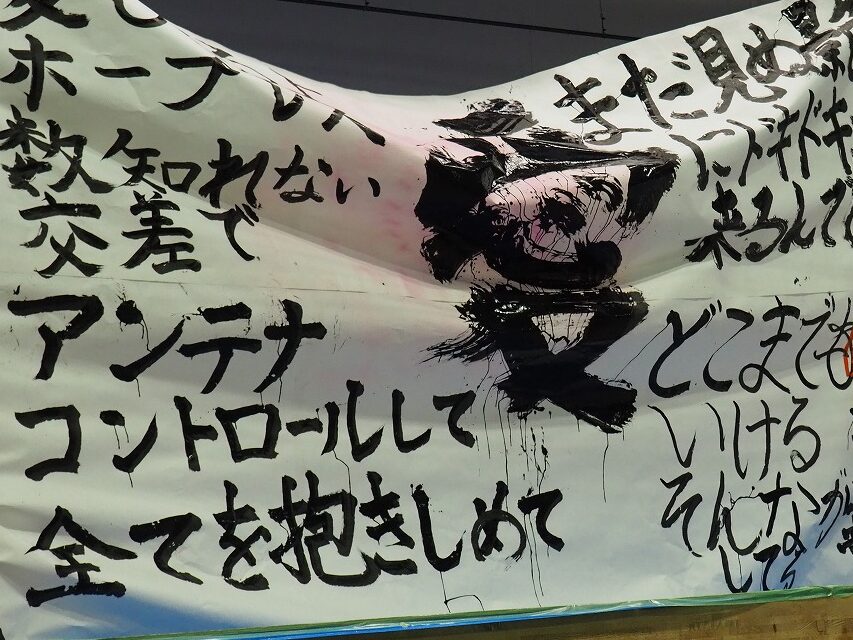 ホープレス
数知れない
交差で
アンテナ
コントロールして
全てを抱きしめて
愛
まだ見ぬ景
にドキドキ
来るんで
どこまでも
いける
そんな
してる